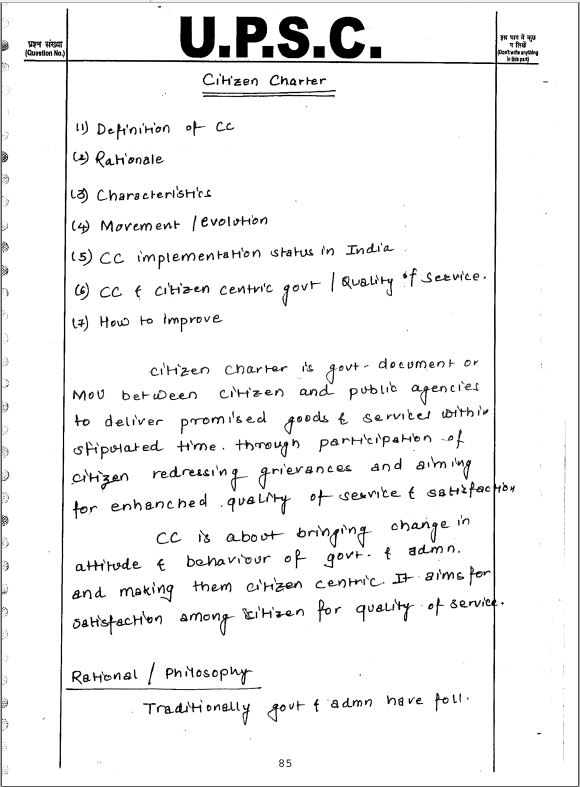 प्रश्न संख्या
(Question No.)
U.P.S.C.
इस भाग में कुछ
न लिखें
(Don't write anything
in this part)
Citizen Charter
(1) Definition of CC
(2) Rationale
(3) Characteristics
(4) Movement / evolution
(5) CC implementation status in India
(6) CC & citizen centric govt / Quality of service.
(7) How to Improve
Citizen Charter is govt- document or
MoU between citizen and public agencies
to deliver promised goods & services within
stipulated time. through participation of
citizen redressing grievances and aiming
for enhanched quality of service & satisfaction
CC is about bringing change in
attitude & behaviour of govt. & admn.
and making them citizen centric. It aims for
satisfaction among citizen for quality of service.
Rational / Philosophy
Traditionally govt & admn have foll.
85